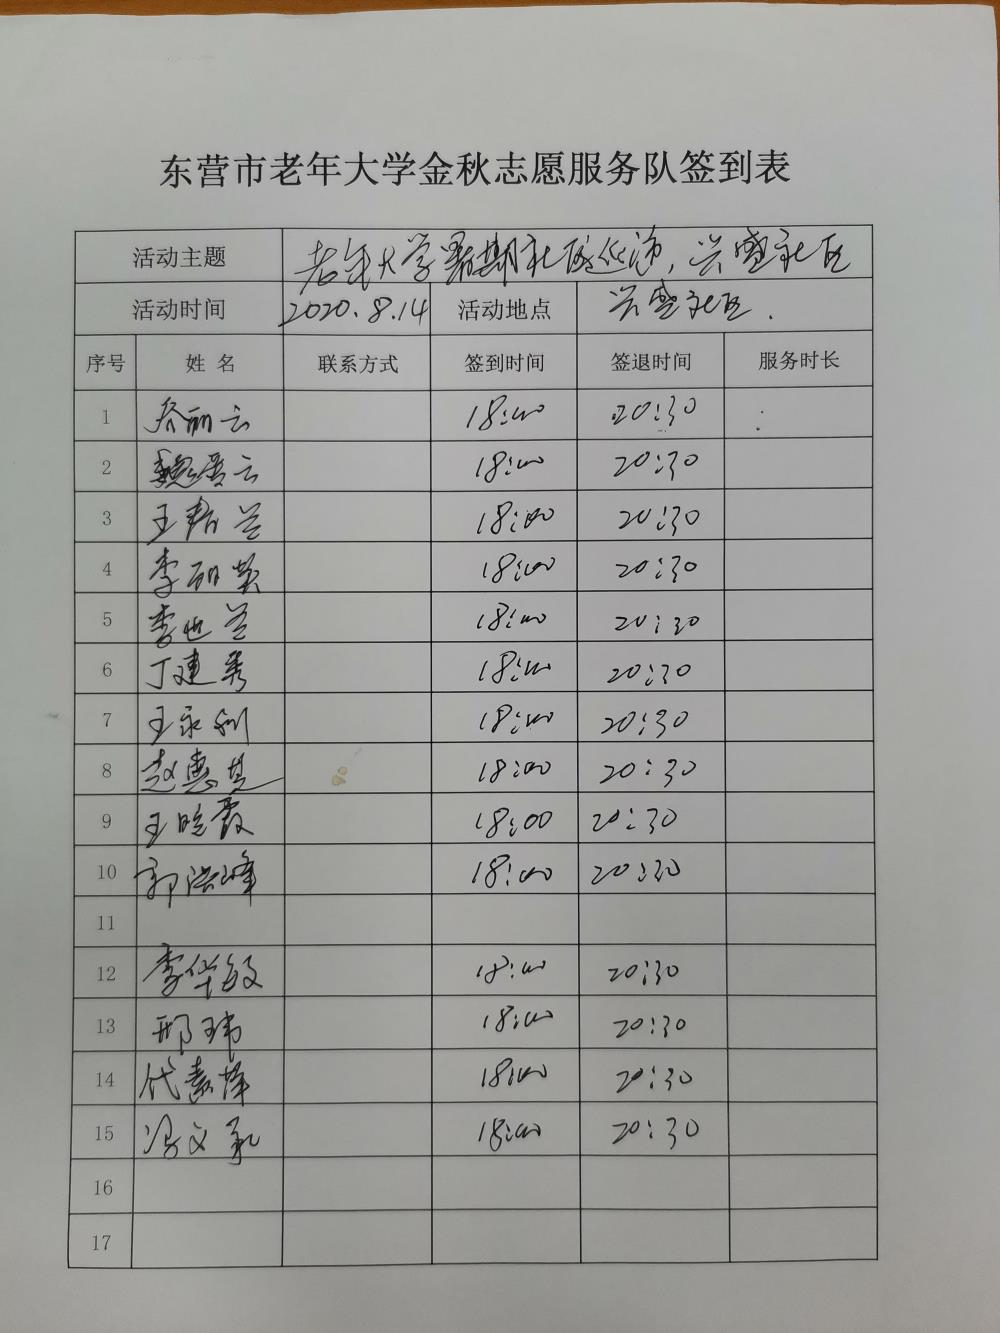 东营市老年大学金秋志愿服务队签到表
活动主题 老年大学暑期社区巡演，兴盛社区
活动时间 2020.8.14 活动地点 兴盛社区.
序号 姓名 联系方式 签到时间 签退时间 服务时长
1 丽云 18:00 20:30 :
2 魏云 18:00 20:30
3 王兰 18:00 20:30
4 李丽英 18:00 20:30
5 李世兰 18:00 20:30
6 丁建秀 18:00 20:30
7 王永利 18:00 20:30
8 赵惠芝 18:00 20:30
9 王晓霞 18:00 20:30
10 郭洪峰 18:00 20:30
11
12 李华敏 18:00 20:30
13 邢玮 18:00 20:30
14 代素萍 18:00 20:30
15 冯文 18:00 20:30
16
17